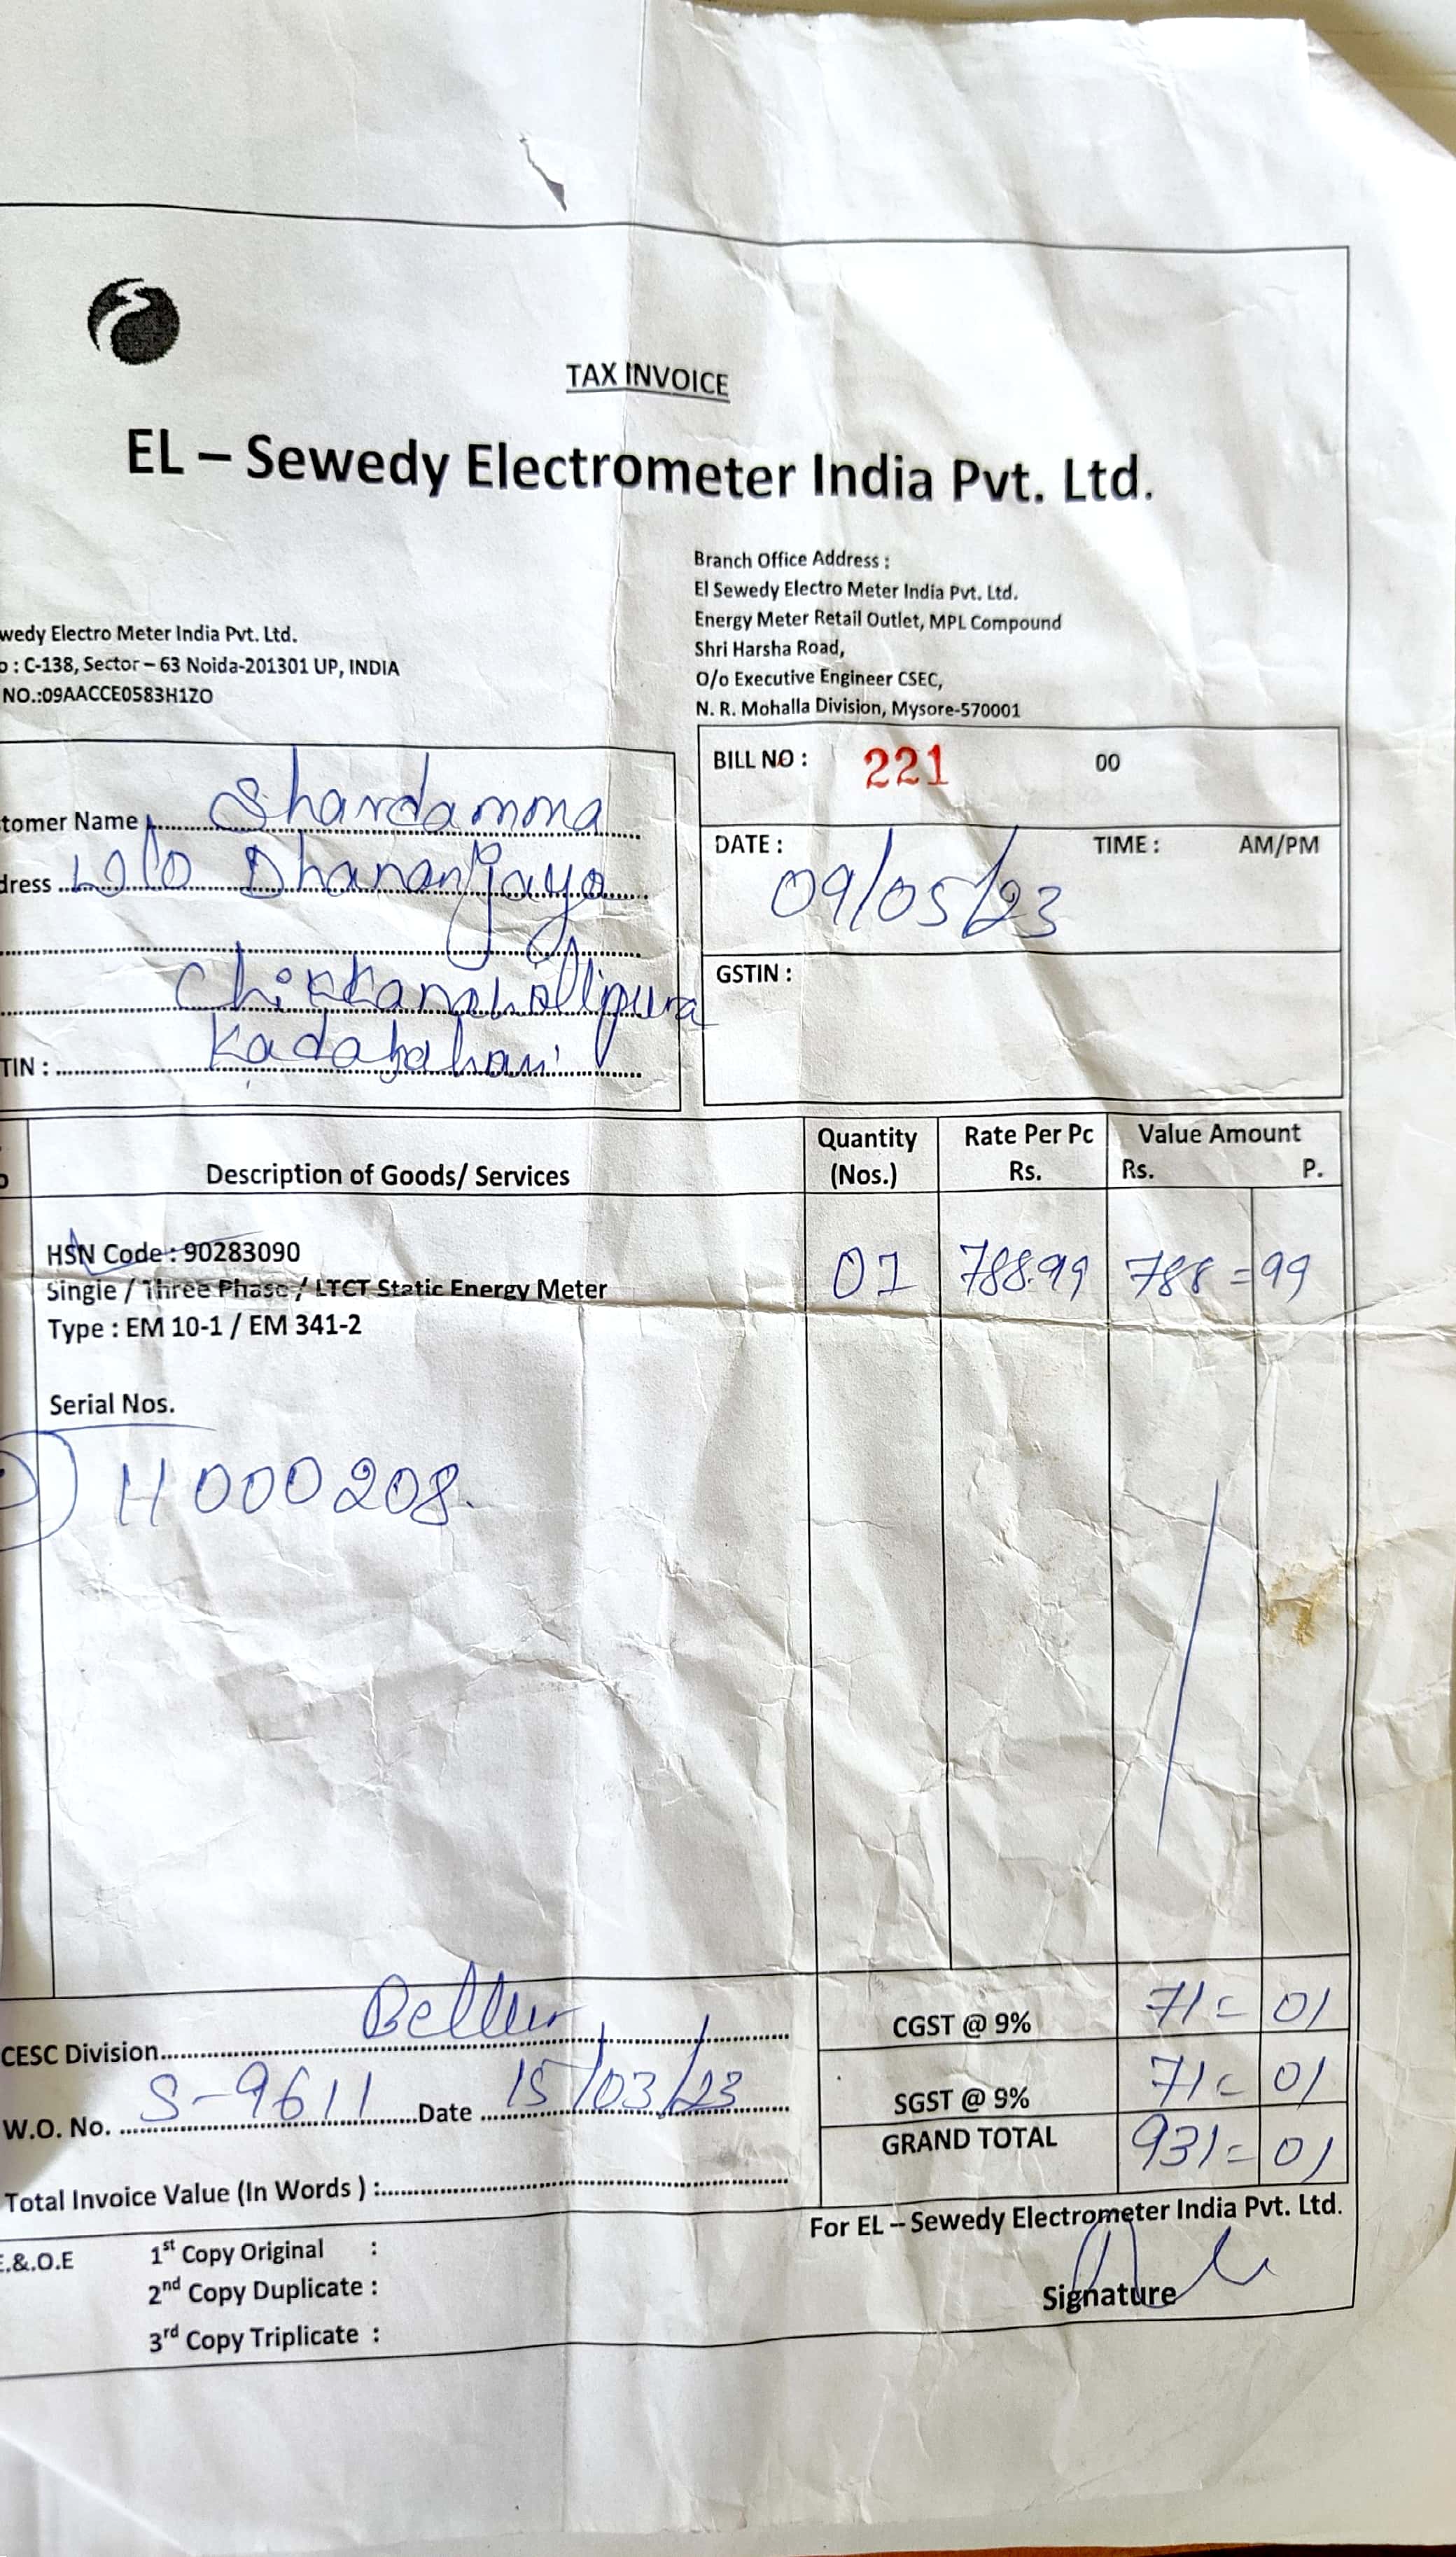 TAX INVOICE
EL – Sewedy Electrometer India Pvt. Ltd.
Branch Office Address :
El Sewedy Electro Meter India Pvt. Ltd.
Energy Meter Retail Outlet, MPL Compound
Shri Harsha Road,
O/o Executive Engineer CSEC,
N. R. Mohalla Division, Mysore-570001
wedy Electro Meter India Pvt. Ltd.
o : C-138, Sector – 63 Noida-201301 UP, INDIA
NO.:09AACCE0583H1ZO
tomer Name : Shardamma
dress W/o Dhananjaya
TIN :
BILL NO : 221 00
DATE : 09/05/23 TIME : AM/PM
GSTIN :
Description of Goods/ Services Quantity (Nos.) Rate Per Pc Rs. Value Amount Rs. P.
HSN Code : 90283090
Single / Three Phase / LTCT Static Energy Meter 01 788.99 788=99
Type : EM 10-1 / EM 341-2
Serial Nos.
H000208.
CESC Division Bellur
W.O. No. S-9611 Date 15/03/23
Total Invoice Value (In Words ) :
CGST @ 9% 71= 01
SGST @ 9% 71= 01
GRAND TOTAL 931= 01
For EL – Sewedy Electrometer India Pvt. Ltd.
Signature
E.&.O.E 1st Copy Original :
2nd Copy Duplicate :
3rd Copy Triplicate :